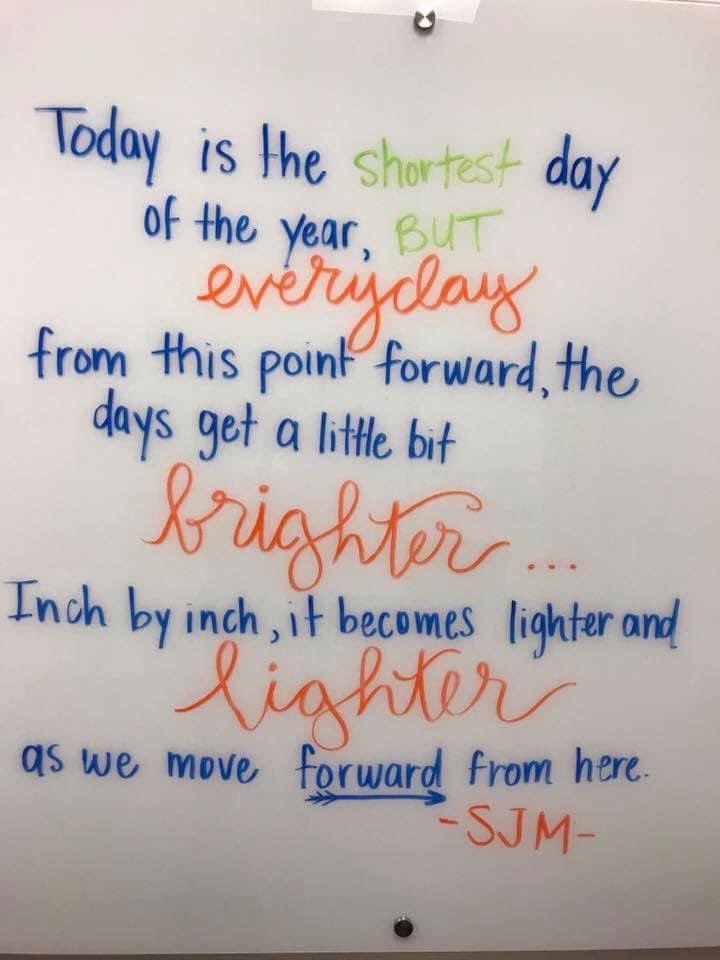 Today is the shortest day
of the year, BUT
everyday
from this point forward, the
days get a little bit
brighter...
Inch by inch, it becomes lighter and
lighter
as we move forward from here.
-SJM-